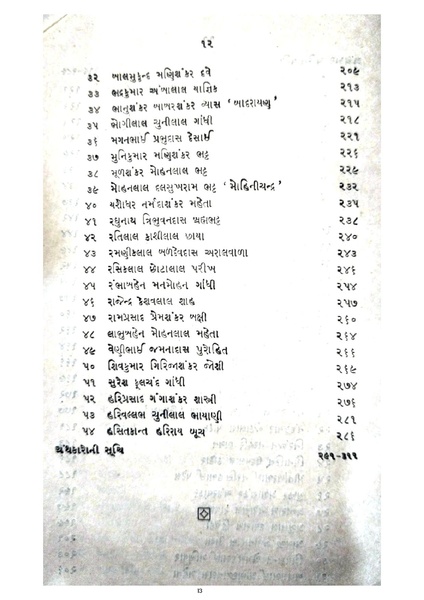 ૧૨
૩૨ બાલમુકુન્દ મણિશંકર દવે ૨૦૯
૩૩ ભદ્રકુમાર અંબાલાલ યાજ્ઞિક ૨૧૩
૩૪ ભાનુશંકર બાબરશંકર વ્યાસ ‘બાદરાયણ’ ૨૧૫
૩૫ ભોગીલાલ ચુનીલાલ ગાંધી ૨૧૮
૩૬ મગનભાઈ પ્રભુદાસ દેસાઈ ૨૨૧
૩૭ મુનિકુમાર મણિશંકર ભટ્ટ ૨૨૬
૩૮ મૂળશંકર મોહનલાલ ભટ્ટ ૨૨૯
૩૯ મોહનલાલ દલસુખરામ ભટ્ટ ‘મોહિનીચન્દ્ર’ ૨૩૨
૪૦ યશોધર નર્મદાશંકર મહેતા ૨૩૫
૪૧ રઘુનાથ ત્રિભુવનદાસ બ્રહ્મભટ્ટ ૨૩૮
૪૨ રતિલાલ કાશીલાલ છાયા ૨૪૦
૪૩ રમણીકલાલ બળદેવદાસ અરાલવાળા ૨૪૩
૪૪ રસિકલાલ છોટાલાલ પરીખ ૨૪૬
૪૫ રંભાબહેન મનમોહન ગાંધી ૨૫૪
૪૬ રાજેન્દ્ર કેશવલાલ શાહ ૨૫૭
૪૭ રામપ્રસાદ પ્રેમશંકર બક્ષી ૨૬૦
૪૮ લાભુબહેન મોહનલાલ મહેતા ૨૬૪
૪૯ વેણીભાઈ જમનાદાસ પુરોહિત ૨૬૬
૫૦ શિવકુમાર ગિરિજાશંકર જોશી ૨૬૯
૫૧ સુરેશ ફૂલચંદ ગાંધી ૨૭૪
૫૨ હરિપ્રસાદ ગંગાશંકર શાસ્ત્રી ૨૭૬
૫૩ હરિવલ્લભ ચુનીલાલ ભાયાણી ૨૮૧
૫૪ હસિતકાન્ત હરિરાય બૂચ ૨૮૬
ગ્રંથકારોની સૂચિ ૨૯૧-૩૧૧
13